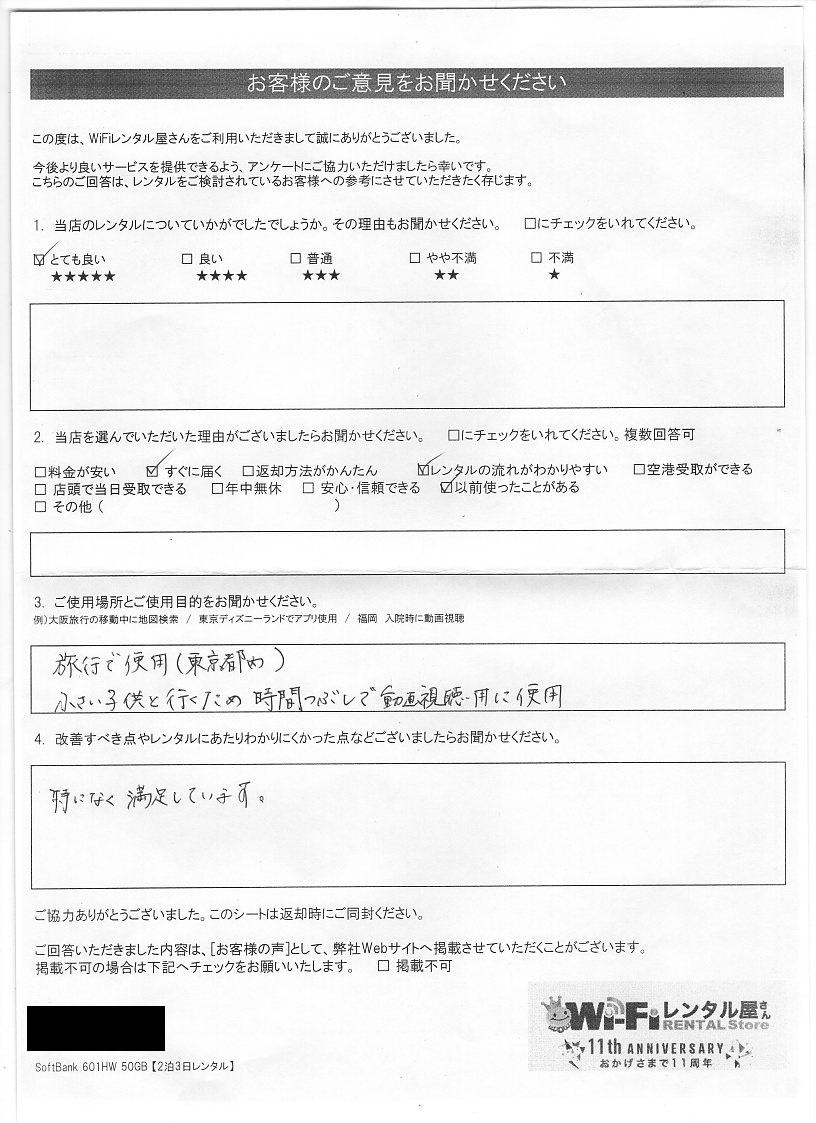 お客様のご意見をお聞かせください
この度は、WiFiレンタル屋さんをご利用いただきまして誠にありがとうございました。
今後より良いサービスを提供できるよう、アンケートにご協力いただけましたら幸いです。
こちらのご回答は、レンタルをご検討されているお客様への参考にさせていただきたく存じます。
1. 当店のレンタルについていかがでしたでしょうか。その理由もお聞かせください。 □にチェックをいれてください。
☑とても良い □ 良い □ 普通 □ やや不満 □ 不満
★★★★★ ★★★★ ★★★ ★★ ★
2. 当店を選んでいただいた理由がございましたらお聞かせください。 □にチェックをいれてください。複数回答可
□料金が安い ☑ すぐに届く □返却方法がかんたん ☑レンタルの流れがわかりやすい □空港受取ができる
□ 店頭で当日受取できる □年中無休 □ 安心・信頼できる ☑以前使ったことがある
□ その他 ( )
3. ご使用場所とご使用目的をお聞かせください。
例)大阪旅行の移動中に地図検索 / 東京ディズニーランドでアプリ使用 / 福岡 入院時に動画視聴
旅行で使用(東京都内)
小さい子供と行くため 時間つぶしで動画視聴用に使用
4. 改善すべき点やレンタルにあたりわかりにくかった点などございましたらお聞かせください。
特になく満足しています。
ご協力ありがとうございました。このシートは返却時にご同封ください。
ご回答いただきました内容は、[お客様の声]として、弊社Webサイトへ掲載させていただくことがございます。
掲載不可の場合は下記へチェックをお願いいたします。 □ 掲載不可
Wi-Fiレンタル屋さん
RENTAL Store
11th ANNIVERSARY
おかげさまで11周年
SoftBank 601HW 50GB【2泊3日レンタル】